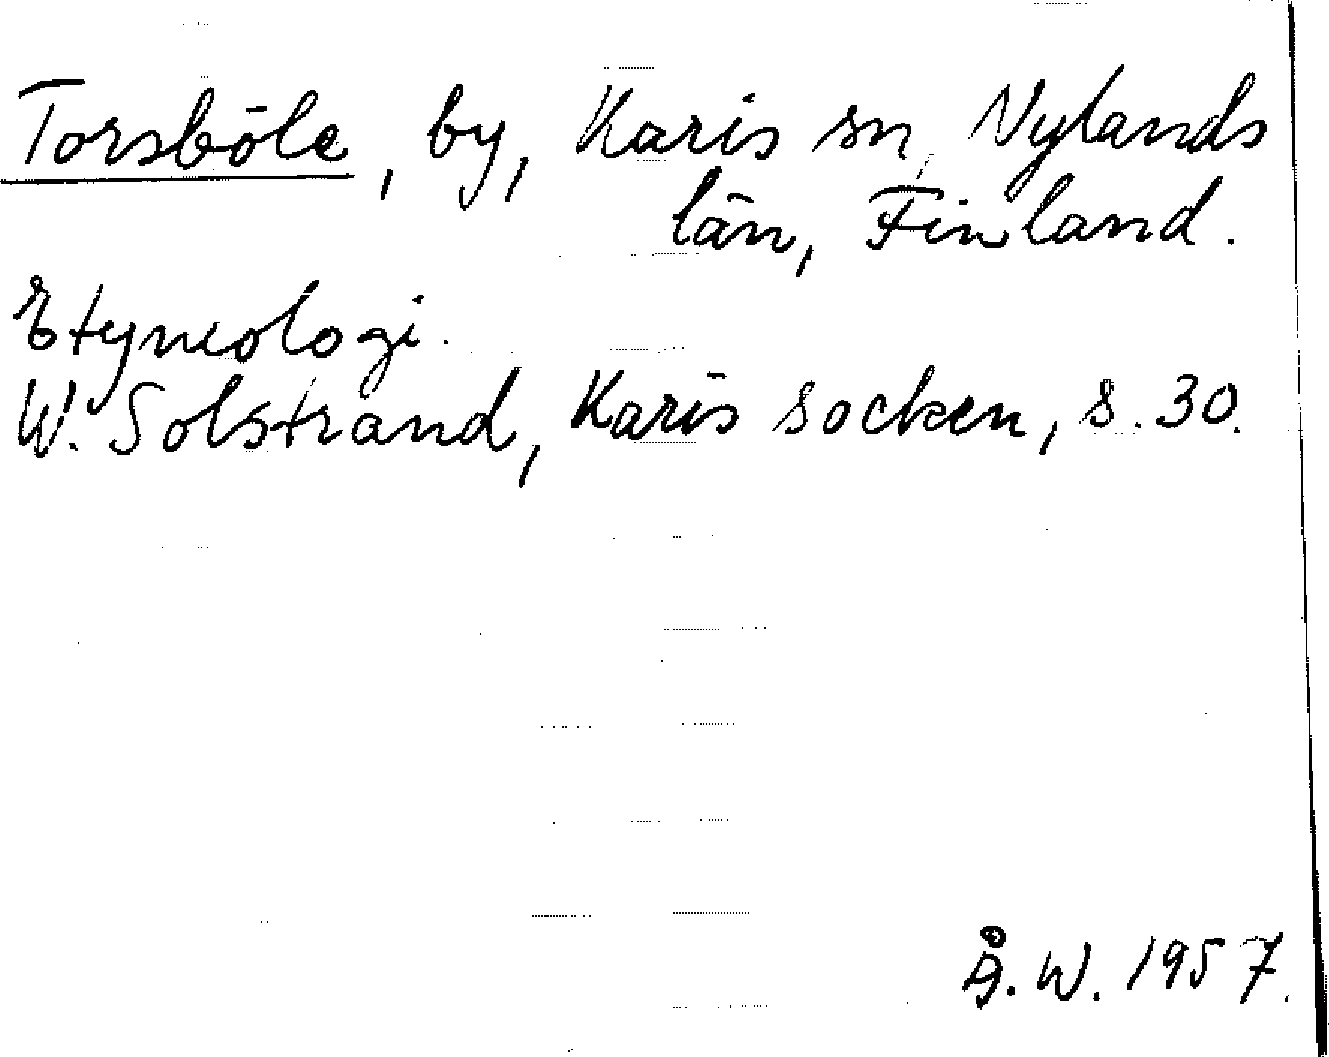 Torsböle, by, Karis sn, Nylands
län, Finland.
Etymologi.
W. Solstrand, Karis socken, s. 30.
Å. W. 1957.